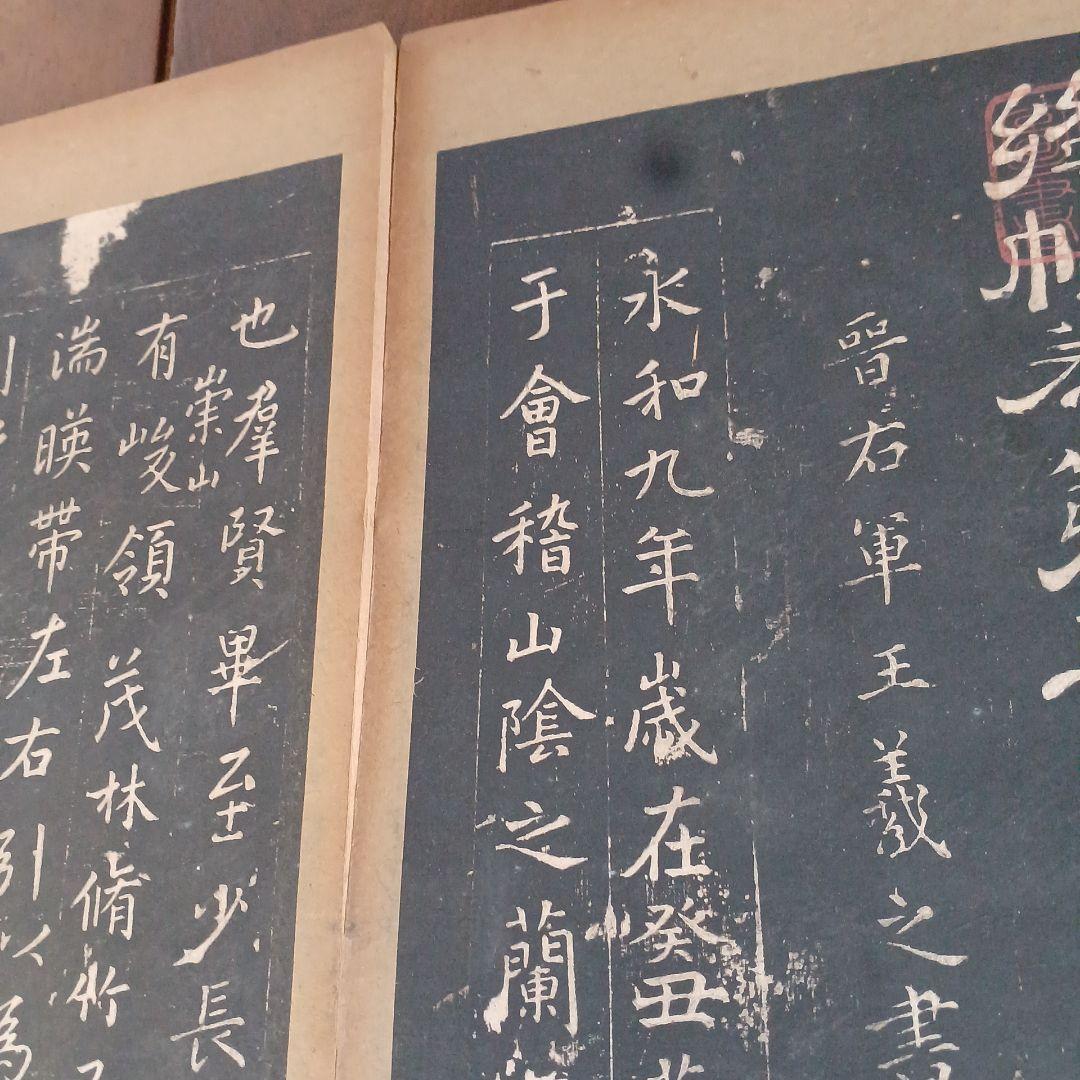 絳帖卷第
晉右軍王羲之書
永和九年歲在癸丑
于會稽山陰之蘭
也羣賢畢至少長
有崇山峻領茂林脩竹
湍暎帶左右引以為